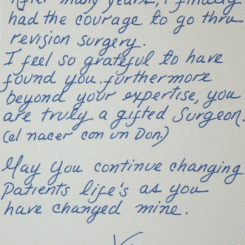 After many years, I finally
had the courage to go thru
revision surgery.
I feel so grateful to have
found you. furthermore
beyond your expertise, you
are truly a gifted Surgeon.
(el nacer con un Don)
May you continue changing
Patients life's as you
have changed mine.